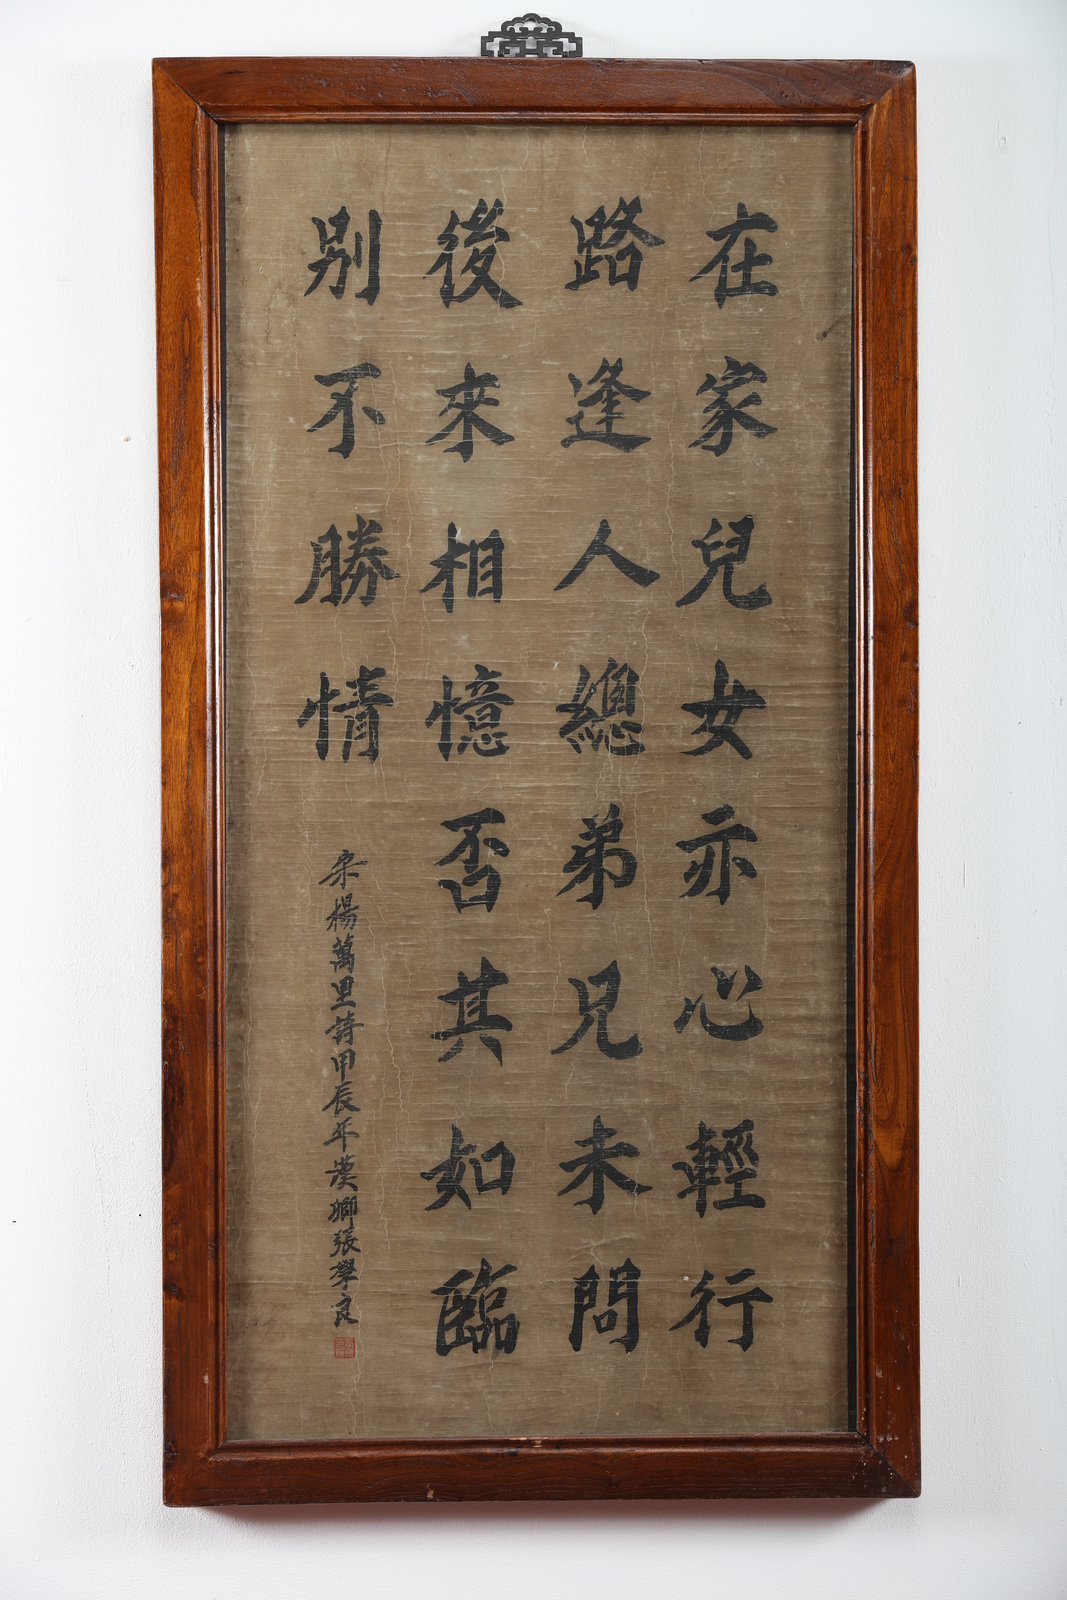 在家兒女亦心輕行
路逢人總弟兄未問
後來相憶否其如臨
別不勝情
宋楊萬里詩甲辰年漢卿張學良